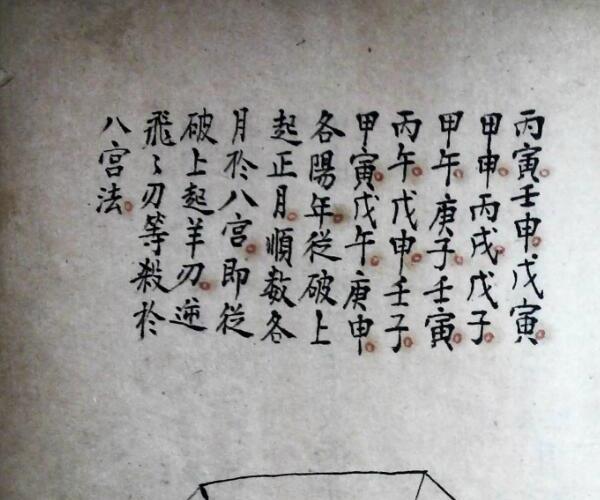 丙寅壬申戊寅
甲申丙戌戊子
甲午庚子壬寅
丙午戊申壬子
甲寅戊午庚申
各陽年從破上
起正月順数各
月於八宫即從
破上起羊刃逆
飛〻刃等殺於
八宫法